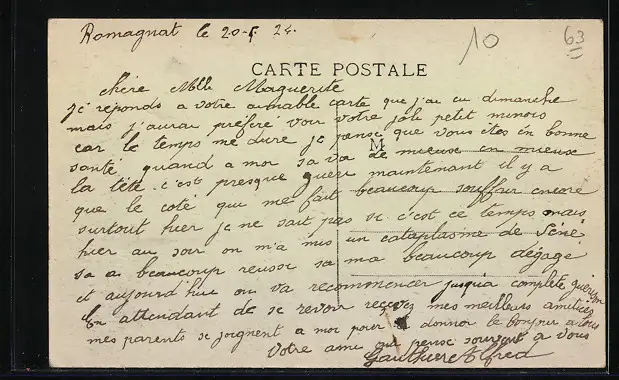 Romagnat le 20-5 24.
10
63
CARTE POSTALE
chère Mlle Marguerite
Je réponds a votre aimable carte que j'ai eu dimanche
mais j'aurai préféré voir votre joli petit minois
car le temps me dure je pense que vous êtes en bonne
santé quand a moi sa va de mieux en mieux
M
la tête c'est presque guéri maintenant il y a
que le coté qui me fait beaucoup souffrir encore
surtout hier je ne sait pas si c'est ce temps mais
hier au soir on m'a mis un cataplasme de
sa a beaucoup reussi sa ma beaucoup dégagé
et aujourd'hui on va recommencer jusqu'a complete guérison
En attendant de se revoir recevez mes meilleurs amitiés
mes parents se joignent a moi pour donner le bonjour a tous
Votre ami qui pense souvent a vous
Alfred